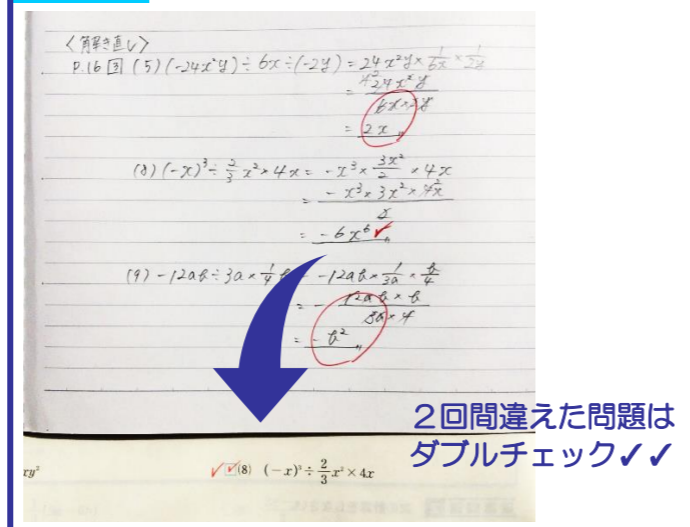 〈解き直し〉
P.16 3 (5) (-24x²y)÷6x÷(-2y) = 24x²y×1/6x×1/2y
= 24x²y/6x×2y
= 2x
(8) (-x)³÷2/3x²×4x = -x³×3x²/2×4x
= -x³×3x²×4x/2
= -6x⁶ ✓
(9) -12ab÷3a×1/4b = -12ab×1/3a×b/4
= -12ab×b/3a×4
= -b²
2回間違えた問題は
ダブルチェック✓✓
xy²
✓✓(8) (-x)³÷2/3x²×4x